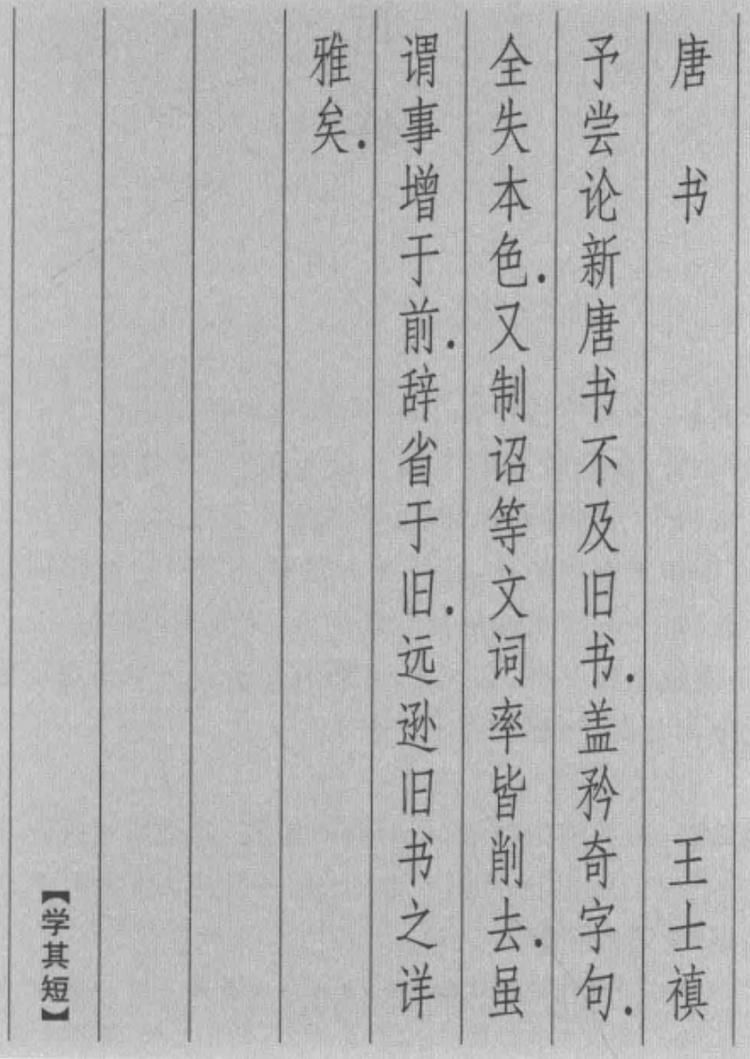 唐 书 王士禛
予尝论新唐书不及旧书.盖矜奇字句.
全失本色.又制诏等文词率皆削去.虽
谓事增于前.辞省于旧.远逊旧书之详
雅矣.
【学其短】